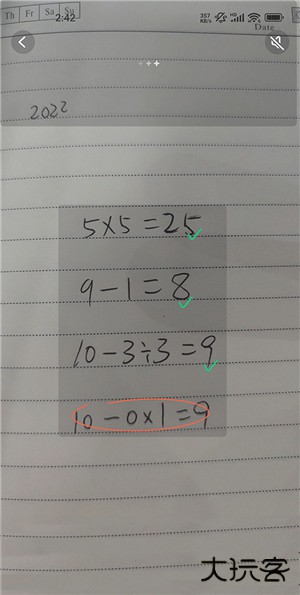 Th Fr Sa Su
2:42
357 KB/s
Date
2022
5×5=25
9-1=8
10-3÷3=9
10-0×1=9
大玩客